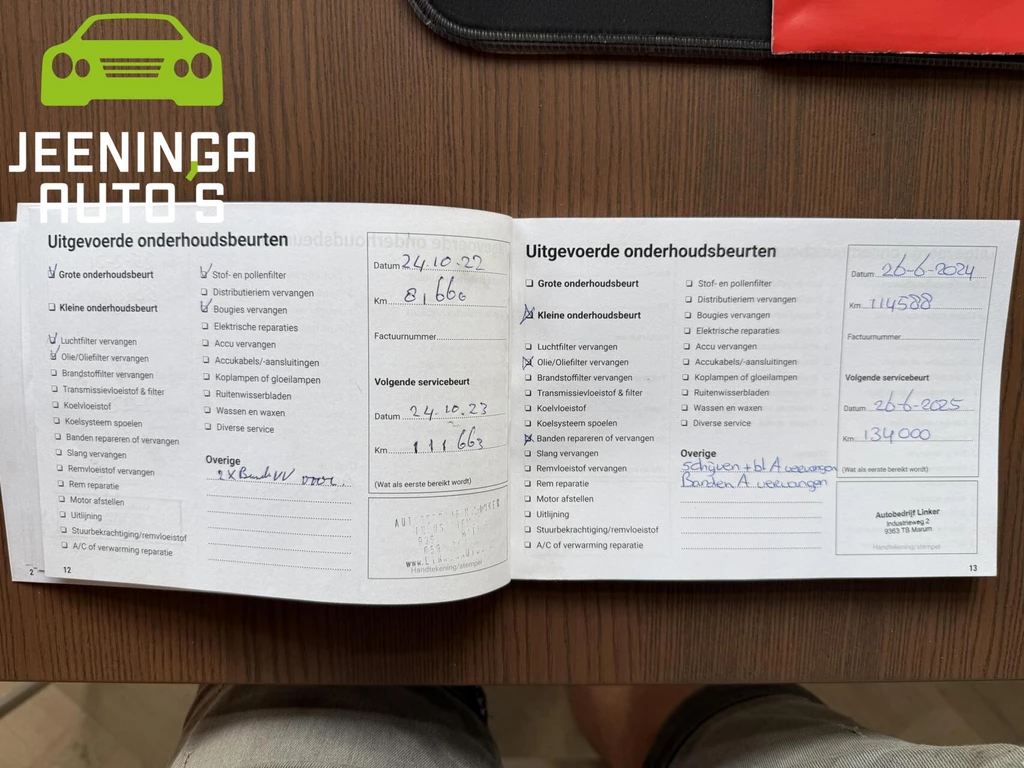 JEENINGA
AUTO'S
Uitgevoerde onderhoudsbeurten
Grote onderhoudsbeurt
Kleine onderhoudsbeurt
Luchtfilter vervangen
Olie/Oliefilter vervangen
Brandstoffilter vervangen
Transmissievloeistof & filter
Koelvloeistof
Koelsysteem spoelen
Banden repareren of vervangen
Slang vervangen
Remvloeistof vervangen
Rem reparatie
Motor afstellen
Uitlijning
Stuurbekrachtiging/remvloeistof
A/C of verwarming reparatie
Stof- en pollenfilter
Distributieriem vervangen
Bougies vervangen
Elektrische reparaties
Accu vervangen
Accukabels/-aansluitingen
Koplampen of gloeilampen
Ruitenwisserbladen
Wassen en waxen
Diverse service
Overige
2x
Datum 24.10.22
Km 81660
Factuurnummer
Volgende servicebeurt
Datum 24.10.23
Km 111663
(Wat als eerste bereikt wordt)
Handtekening/stempel
12
Uitgevoerde onderhoudsbeurten
Grote onderhoudsbeurt
Kleine onderhoudsbeurt
Luchtfilter vervangen
Olie/Oliefilter vervangen
Brandstoffilter vervangen
Transmissievloeistof & filter
Koelvloeistof
Koelsysteem spoelen
Banden repareren of vervangen
Slang vervangen
Remvloeistof vervangen
Rem reparatie
Motor afstellen
Uitlijning
Stuurbekrachtiging/remvloeistof
A/C of verwarming reparatie
Stof- en pollenfilter
Distributieriem vervangen
Bougies vervangen
Elektrische reparaties
Accu vervangen
Accukabels/-aansluitingen
Koplampen of gloeilampen
Ruitenwisserbladen
Wassen en waxen
Diverse service
Overige
schijven + bl A vervangen
Banden A vervangen
Datum 26-6-2024
Km 114588
Factuurnummer
Volgende servicebeurt
Datum 26-6-2025
Km 134000
(Wat als eerste bereikt wordt)
Autobedrijf Linker
Industrieweg 2
9363 TB Marum
Handtekening/stempel
13